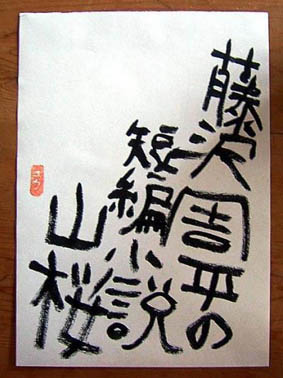 藤沢周平の
短編小説
山桜